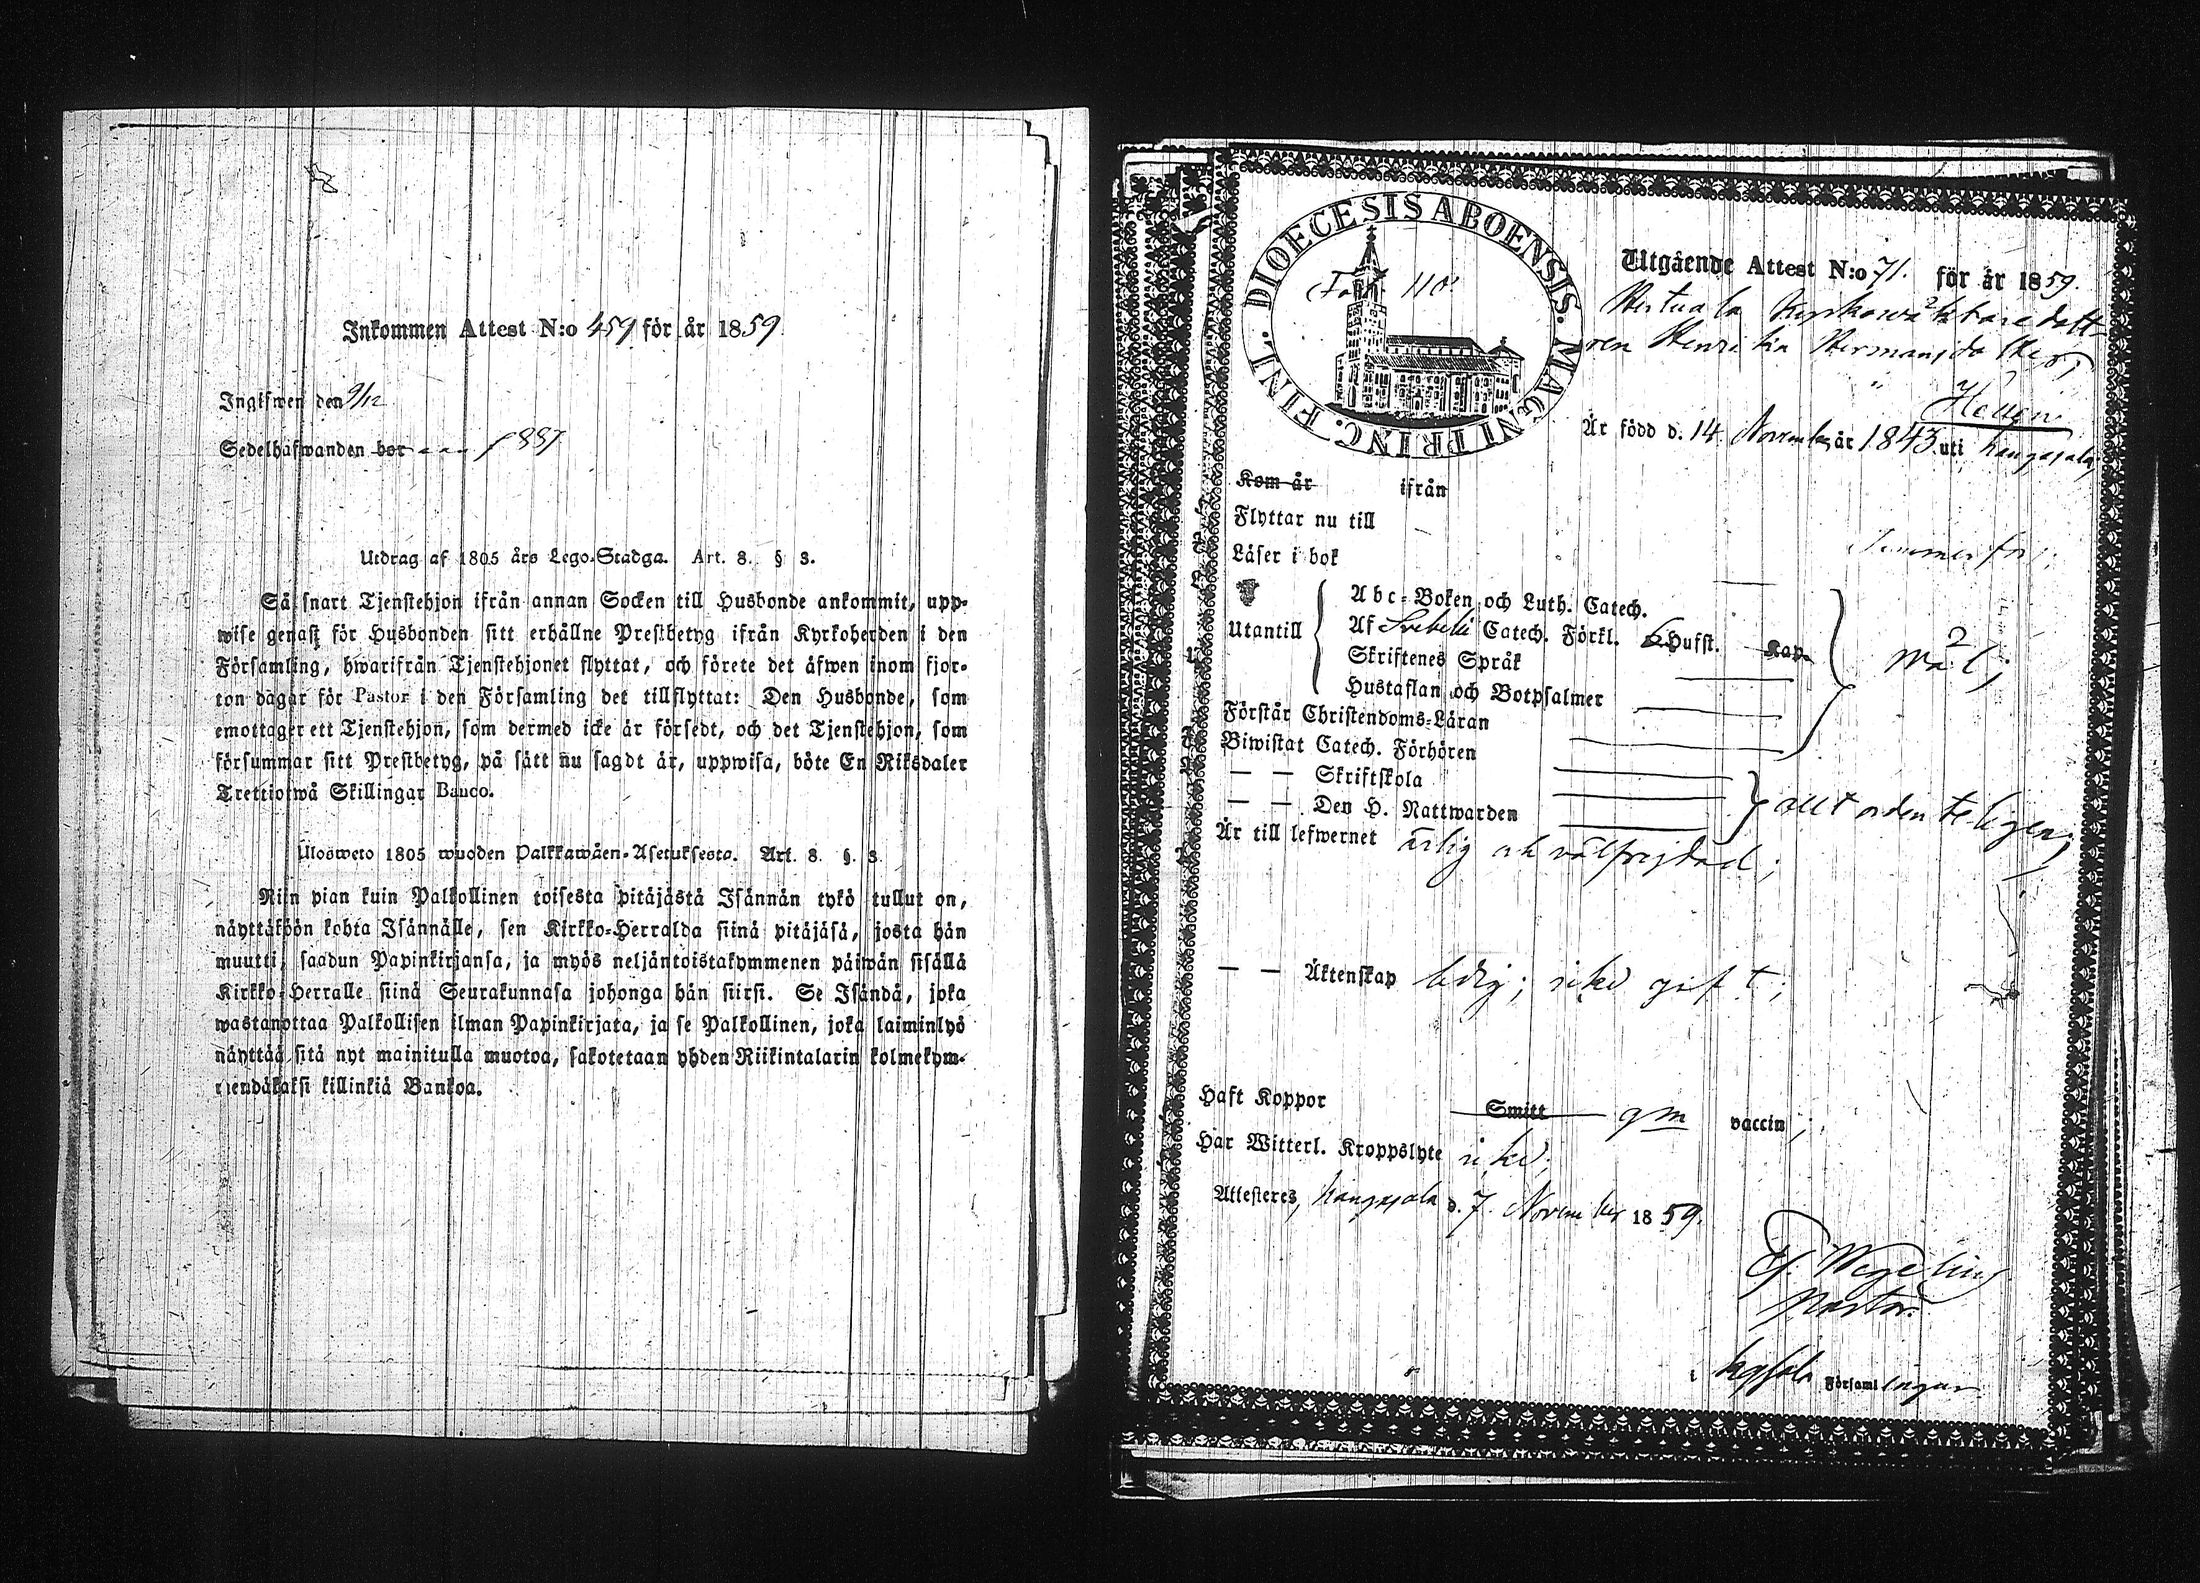 Inkommen Attest N:o 459 för år 1859
Ingifwen den 9/12
Sedelhafwanden bor 887
Utdrag af 1805 års Lego-Stadga. Art. 8. § 3.
Så snart Tjenstehjon ifrån annan Socken till Husbonde ankommit, upp-
wise genast för Husbonden sitt erhållne Prestbetyg ifrån Kyrkoherden i den
Församling, hwarifrån Tjenstehjonet flyttat, och förete det äfwen inom fjor-
ton dagar för Pastor i den Församling det tillflyttat: Den Husbonde, som
emottager ett Tjenstehjon, som dermed icke är försedt, och det Tjenstehjon, som
försummar sitt Prestbetyg, på sätt nu sagdt är, uppwisa, böte En Riksdaler
Trettiotwå Skillingar Banco.
Uloswetο 1805 wuoden Palkkawäen-Asetuksesta. Art. 8. §. 3.
Niin pian kuin Palkollinen toisesta pitäjästä Isännän tykö tullut on,
näyttäköön kohta Isännälle, sen Kirkko-Herralda siinä pitäjäsä, josta hän
muutti, saadun Papinkirjansa, ja myös neljäntoistakymmenen päiwän sisällä
Kirkko-Herralle siinä Seurakunnasa johonga hän siirsi. Se Isändä, joka
wastanottaa Palkollisen ilman Papinkirjata, ja se Palkollinen, joka laiminlyö
näyttää sitä nyt mainitulla muotoa, sakotetaan yhden Riikintalarin kolmekym-
mendäkaksi killinkiä Bankoa.
DIOECESIS ABOENSIS. MAGNI PRINC. FINL.
Fol. 110.
Utgående Attest N:o 71. för år 1859.
Kyrkowäktaredott-
ren Henrika Hermansdotter
Är född d. 14 November år 1843 uti Kangasala;
Kom år ifrån
Flyttar nu till
Tammerfors;
Läser i bok
Utantill
Abc-Boken och Luth. Catech.
Af Svebelii Catech. Förkl. 6 Hufst. Kap.
Skriftenes Språk
Hustaflan och Botpsalmer
Förstår Christendoms-Läran
wäl;
Biwistat Catech. Förhören
— — Skriftskola
— — Den H. Nattwarden
allt ordenteligen;
Är till lefwernet ärlig och välfrejdad;
— — Äktenskap ledig; icke gift;
Haft Koppor Smitt gm vaccin;
Har Witterl. Kroppslyte icke;
Attesteres, Kangasala d. 7 November 1859.
Wegelius
Pastor.
i Församlingar